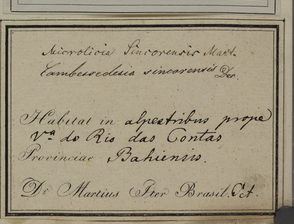 Microlicia Sincorensis Mart.
Cambessedesia sincorensis Dec.
Habitat in alpestribus prope
Va do Rio das Contas
Provinciae Bahiensis.
Dr. Martius Iter Brasil. Ect.